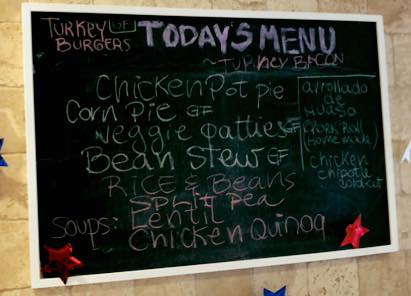 TURKEY GF
BURGERS
TODAY'S MENU
~TURKEY BACON
Chicken Pot pie
Corn Pie GF
Veggie Patties GF
Bean Stew GF
RICE & BeaNs
SPLIT Pea
SOUPS: Lentil
Chicken Quinoa
arrollado
de
Huaso
(PORK Roll)
(Home made)
chicken
chipotle
cold-cut